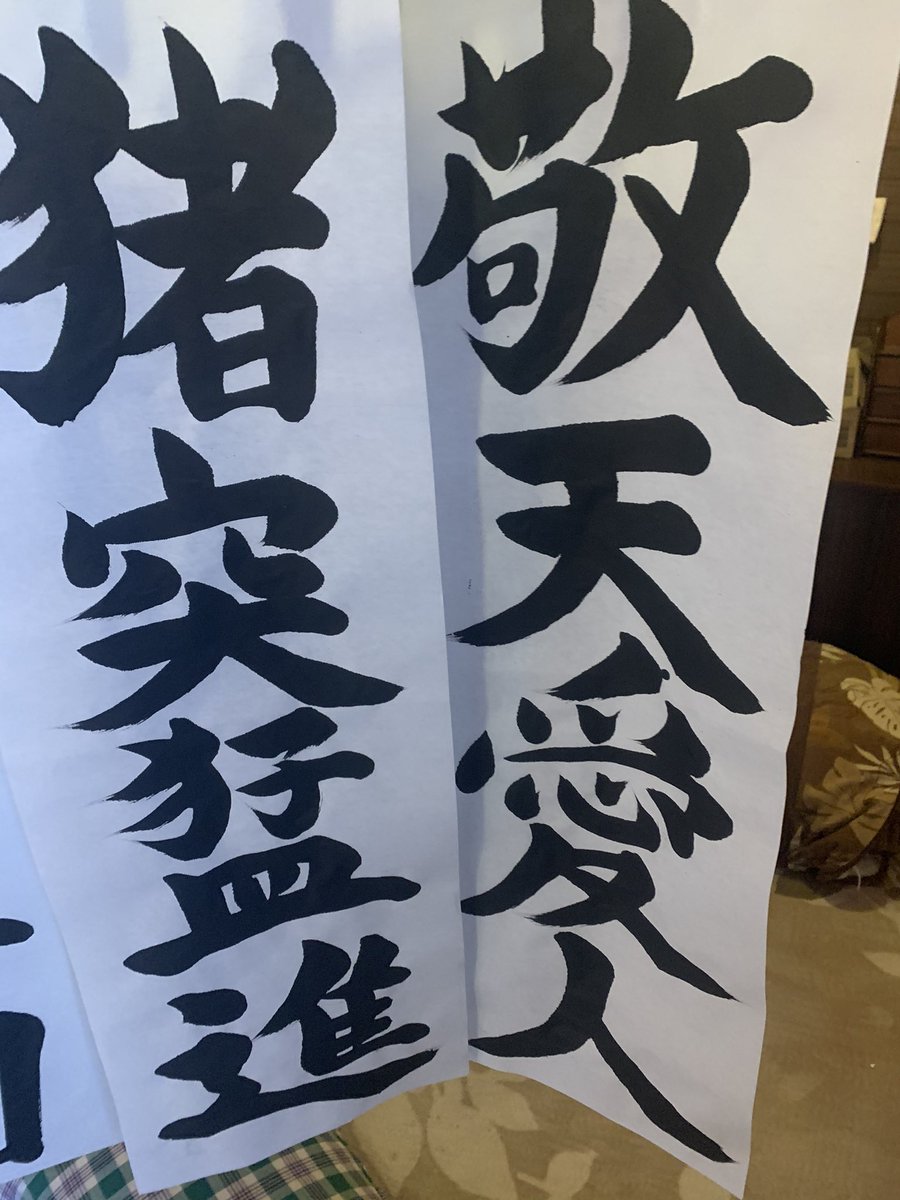 敬天愛人
猪突猛進